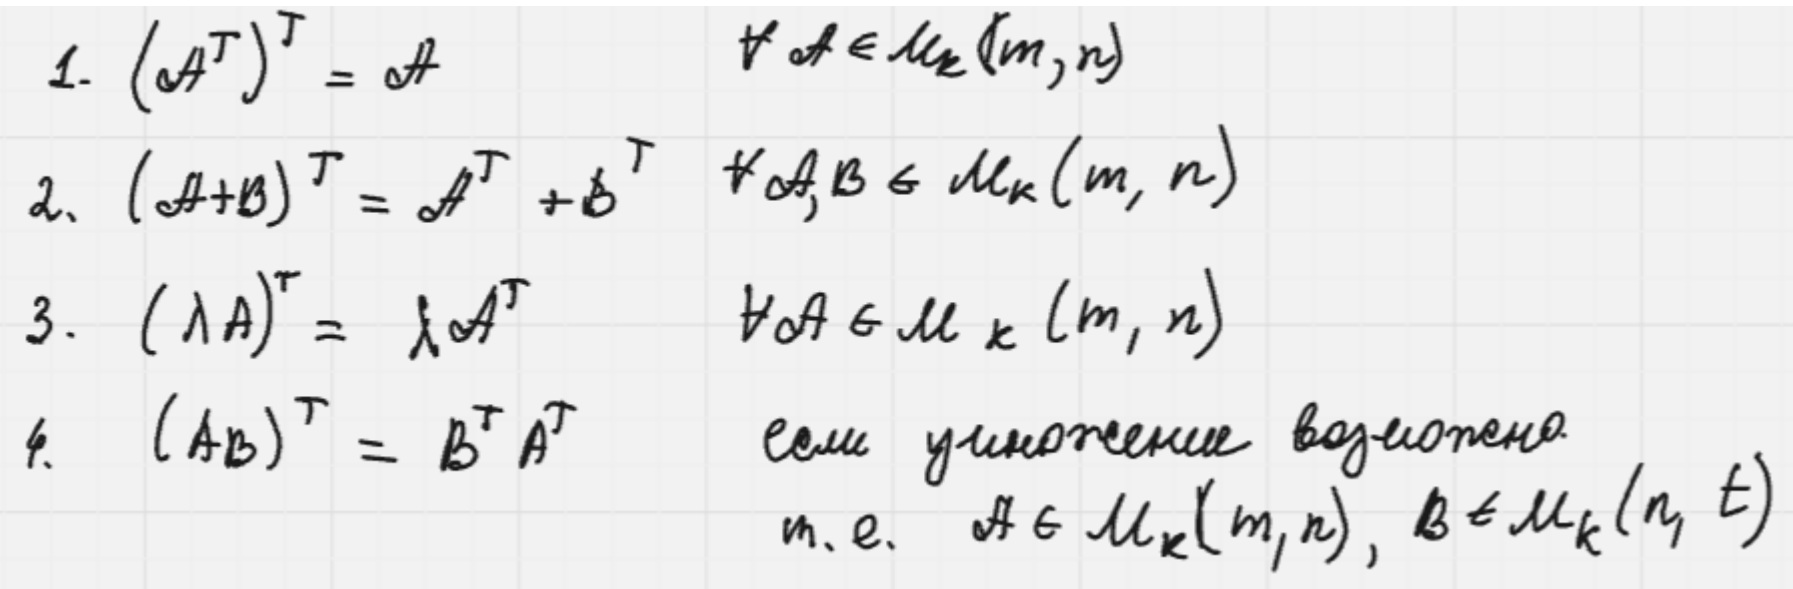 1. (Aᵀ)ᵀ = A ∀ A ∈ M_K (m, n)
2. (A+B)ᵀ = Aᵀ + Bᵀ ∀ A, B ∈ M_K (m, n)
3. (λA)ᵀ = λAᵀ ∀ A ∈ M_K (m, n)
4. (AB)ᵀ = Bᵀ Aᵀ если умножение возможно
т.е. A ∈ M_K (m, n), B ∈ M_K (n, t)